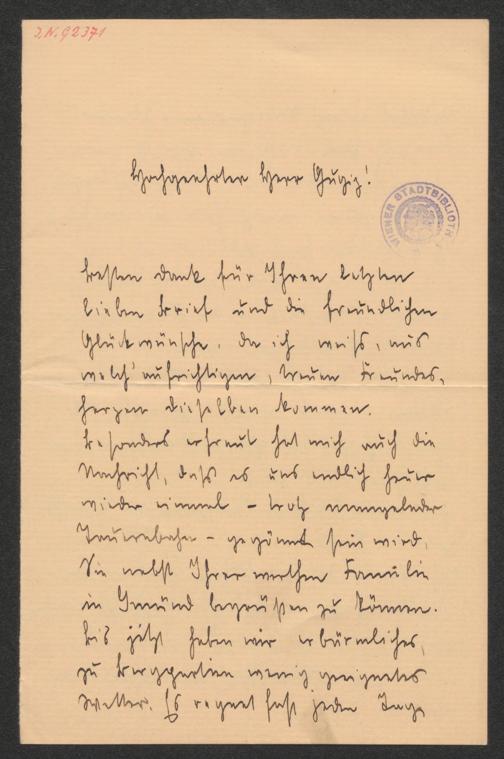 J.N. 92371
Hochgeehrter Herr Gugiz!
WIENER STADTBIBLIOTH
Besten Dank für Ihren letzten
lieben Brief und die freundlichen
Glückwünsche, da ich weiß, aus
welch' aufrichtigen, treuen Freundes-
herzen dieselben kommen.
Besonders erfreut hat mich auch die
Nachricht, daß es uns endlich heuer
wieder einmal – trotz mangelnder
Tauernbahn – gegönnt sein wird,
Sie nebst Ihrer werthen Familie
in Gmünd begrüßen zu können.
Bis jetzt haben wir erbärmliches,
zu Bergpartien wenig geeignetes
Wetter. Es regnet fast jeden Tag